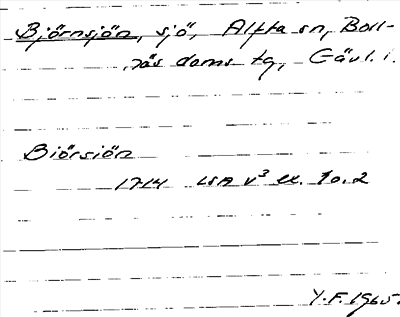 Björnsjön, sjö, Alfta sn, Boll-
näs doms tg, Gävl. l.
Biörsiön
1714 LSA V³ ex. 10.2
Y.F. 1965.